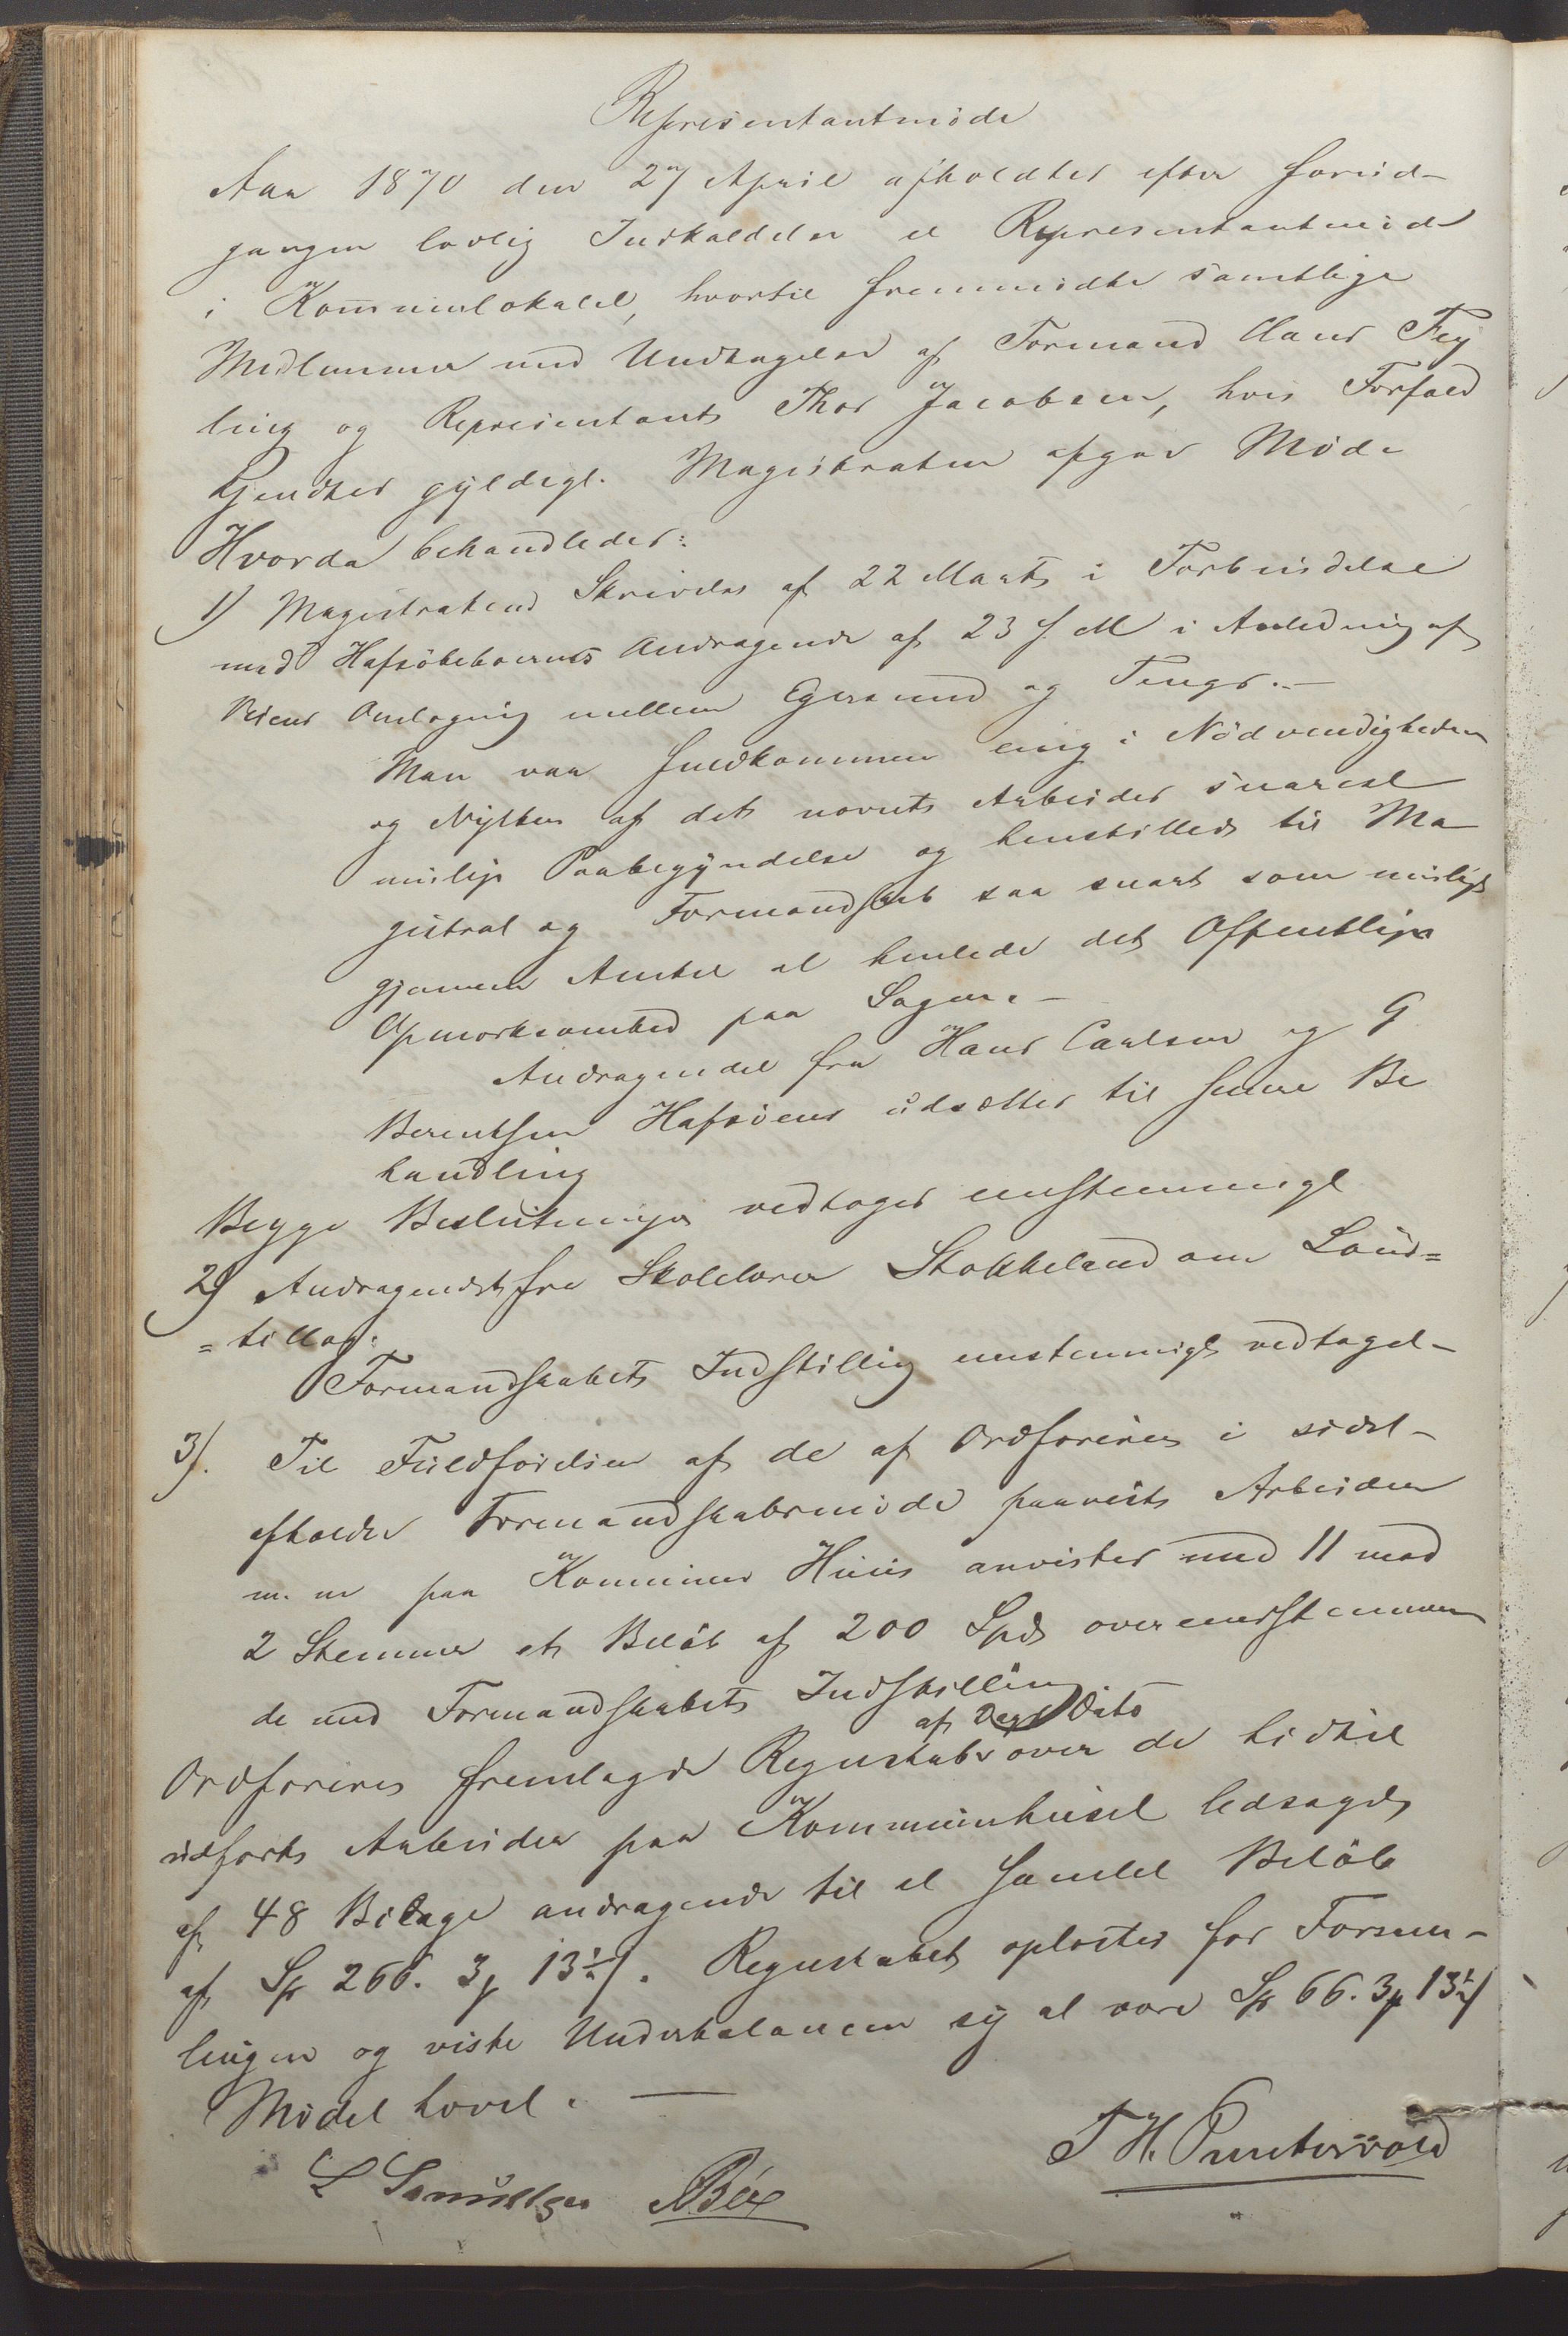 Representantmöde
Aar 1870 den 27 April afholdtes efter forud-
gangen lovlig Indkaldelse et Representantmöde
i Kommunelokalet, hvortil fremmödte samtlige
Medlemmer med Undtagelse af Formand Claus Fey
ling og Representant Thor Jacobsen, hvis Forfald
kjendtes gyldigt. Magistraten afgav Möde
Hvorda behandledes:
1) Magistratens Skrivelse af 22 Marts i Forbindelse
med Hafsöbeboernes Andragende af 23 f. M i Anledning af
Veiens Omlægning mellem Egersund og Tengs.-
Man var fuldkommen enig i Nödvendigheden
og Nytten af det nævnte Arbeides snarest
mulige Paabegyndelse og henstilledes til Ma
gistrat og Formandskab saa snart som muligt
gjennem Amtet at henlede det Offentliges
Opmærksomhed paa Sagen.-
Andragendet fra Hans Carlsen og G
Berentsen Hafsöens udsættes til senere Be
handling
Begge Beslutninger vedtoges enstemmigt
2) Andragendet fra Skolelærer Stokkeland om Löns=
=tillæg.
Formandskabets Indstilling enstemmigt vedtaget-
3). Til Fuldförelsen af de af Ordföreren i sidst-
afholdte Formandskabsmöde paaviste Arbeider
m. m paa Kommunes Huus anvistes med 11 mod
2 Stemmer et Belöb af 200 Spd overensstemmen
de med Formandskabets Indstilling
af Dags Dato
Ordföreren fremlagde Regnskab over de hidtil
udförte Arbeider paa Kommunehuset ledsaget
af 48 Bilage andragende til et samlet Belöb
af Sp 266. 3 13½. Regnskabet oplæstes for Forsam-
lingen og viste Underbalancen sig at være Sp 66. 3 13½
Mödet hævet. —
T H. Puntervold
L Samuelsen Böe